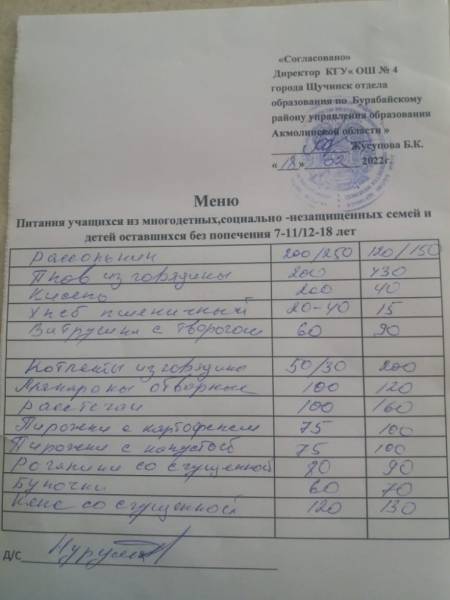 «Согласовано»
Директор КГУ« ОШ № 4
города Щучинск отдела
образования по Бурабайскому
району управления образования
Акмолинской области »
Жусупова Б.К.
« 18 » 02 2022г.
Меню
Питания учащихся из многодетных,социально -незащищенных семей и
детей оставшихся без попечения 7-11/12-18 лет
Рассольник 200/250 120/150
Плов из говядины 200 430
Кисель 200 40
Хлеб пшеничный 20-40 15
Ватрушка с творогом 60 90
Котлеты из говядины 50/30 200
Макароны отварные 100 120
Расстегаи 100 160
Пирожки с картофелем 75 100
Пирожки с капустой 75 100
Рогалики со сгущенкой 80 90
Булочки 60 70
Кекс со сгущенкой 120 130
Д/С